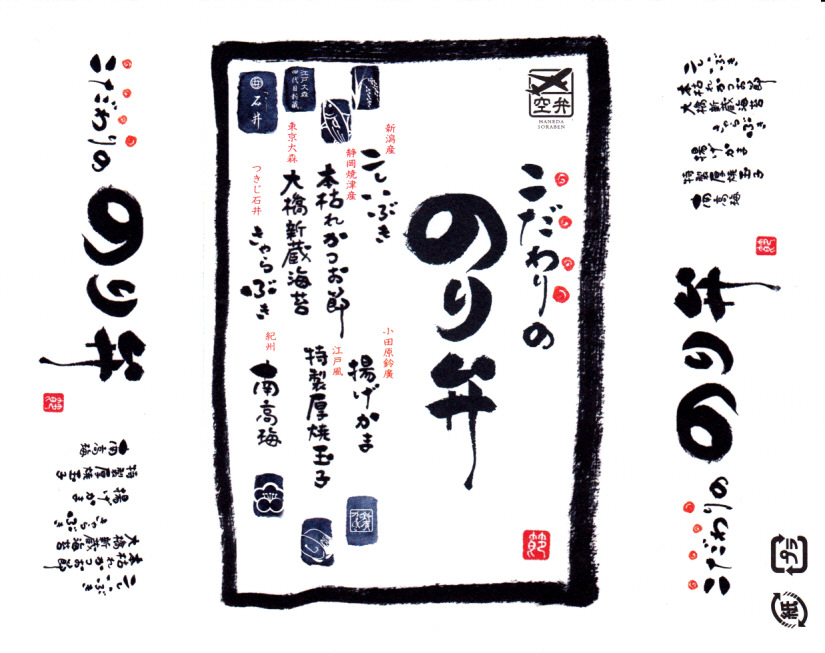 空弁
HANEDA
SORABEN
こだわりの
のり弁
新潟産
こしいぶき
静岡焼津産
本枯れかつお節
東京大森
大橋新蔵海苔
つきじ石井
きゃらぶき
小田原鈴廣
揚げかま
江戸風
特製厚焼玉子
紀州
南高梅
石井
江戸大森
四代目新蔵
こだわりの
のり弁
こしいぶき
本枯れかつお節
大橋新蔵海苔
きゃらぶき
揚げかま
特製厚焼玉子
南高梅
こだわりの
のり弁
こしいぶき
本枯れかつお節
大橋新蔵海苔
きゃらぶき
揚げかま
特製厚焼玉子
南高梅
プラ
紙